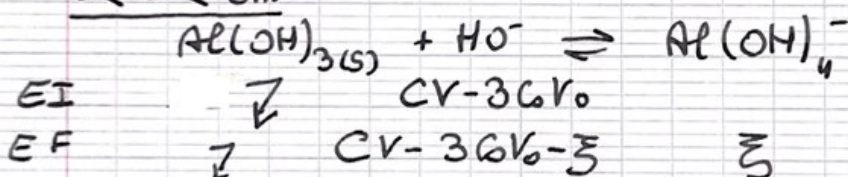 Al(OH)₃(s) + HO⁻ ⇌ Al(OH)₄⁻
EI ↓ CV-3C₀V₀
EF ↓ CV-3C₀V₀-ξ ξ